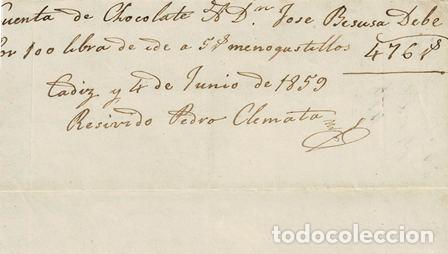 Cuenta de Chocolate A Dn Jose, Besusa Debe
Por 100 libra de ide a 5 rs menogastillos 476 rs
Cadiz y 4 de Junio de 1859
Resivido Pedro Clemata
todocoleccion.net